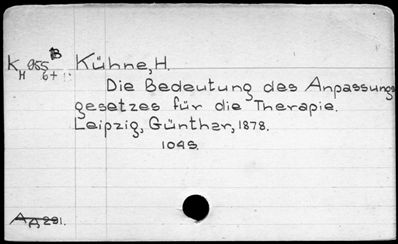 Kühne, H.
Die Bedeutung des Anpassungs
gesetzes für die Therapie.
Leipzig, Günther, 1878.
104S.